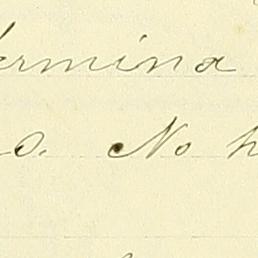 ermina
o. No h